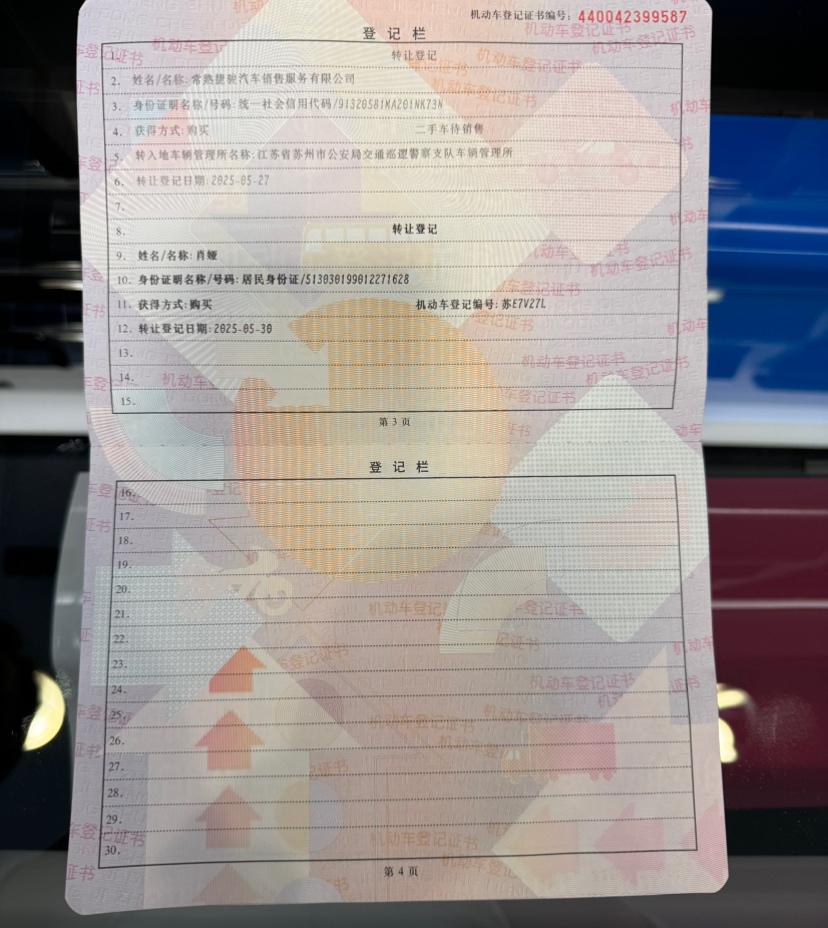 机动车登记证书编号：440042399587
登 记 栏
1. 转让登记
2. 姓名/名称:常熟捷骏汽车销售服务有限公司
3. 身份证明名称/号码:统一社会信用代码/91320581MA201NK73N
4. 获得方式:购买 二手车待销售
5. 转入地车辆管理所名称:江苏省苏州市公安局交通巡逻警察支队车辆管理所
6. 转让登记日期:2025-05-27
7.
8. 转让登记
9. 姓名/名称:肖娅
10. 身份证明名称/号码:居民身份证/513030199012271628
11. 获得方式:购买 机动车登记编号:苏E7V27L
12. 转让登记日期:2025-05-30
13.
14.
15.
第 3 页
登 记 栏
16.
17.
18.
19.
20.
21.
22.
23.
24.
25.
26.
27.
28.
29.
30.
第 4 页